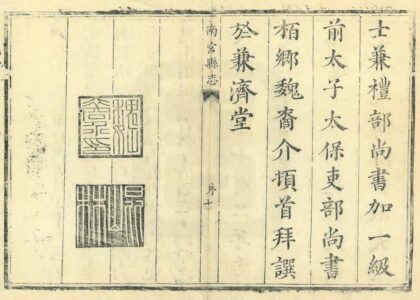 士兼禮部尚書加一級
前太子太保吏部尚書
栢鄉魏裔介頓首拜譔
於兼濟堂
南宮縣志
序